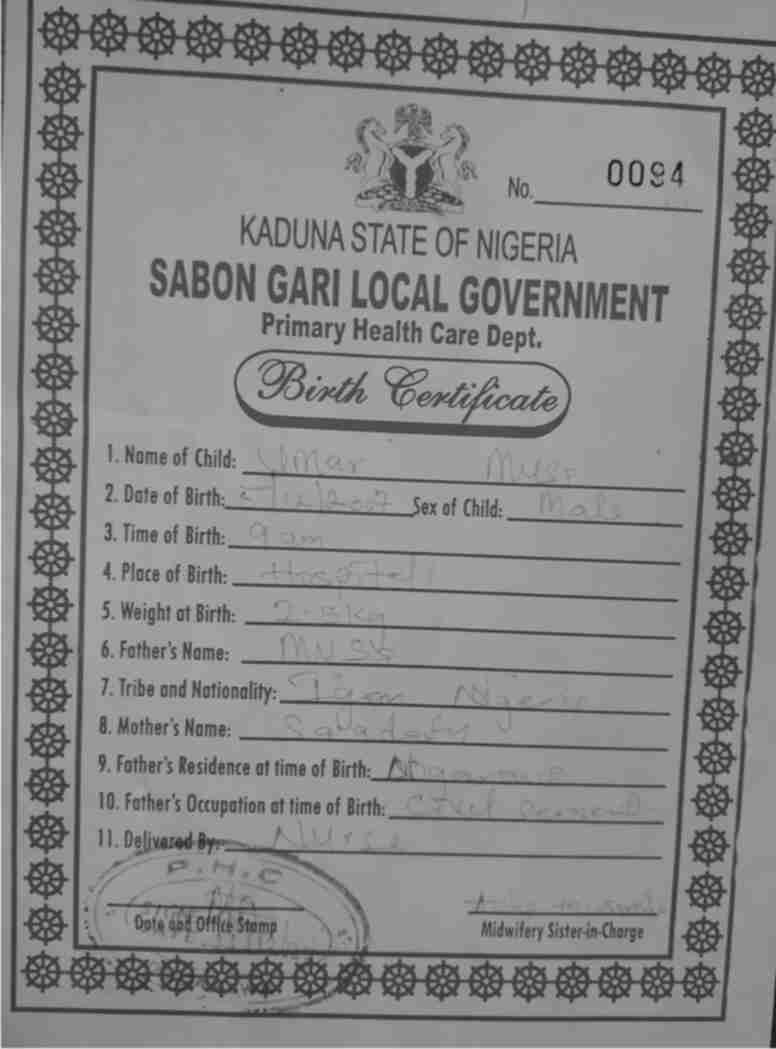 No. 0094
KADUNA STATE OF NIGERIA
SABON GARI LOCAL GOVERNMENT
Primary Health Care Dept.
Birth Certificate
1. Name of Child: Umar Musa
2. Date of Birth: /12/2007 Sex of Child: Male
3. Time of Birth: 9am
4. Place of Birth: Hospital
5. Weight at Birth:
6. Father's Name: Musa
7. Tribe and Nationality: Nigeria
8. Mother's Name:
9. Father's Residence at time of Birth:
10. Father's Occupation at time of Birth: Civil
11. Delivered By: Nurse
P.H.C
Date and Office Stamp
Midwifery Sister-in-Charge